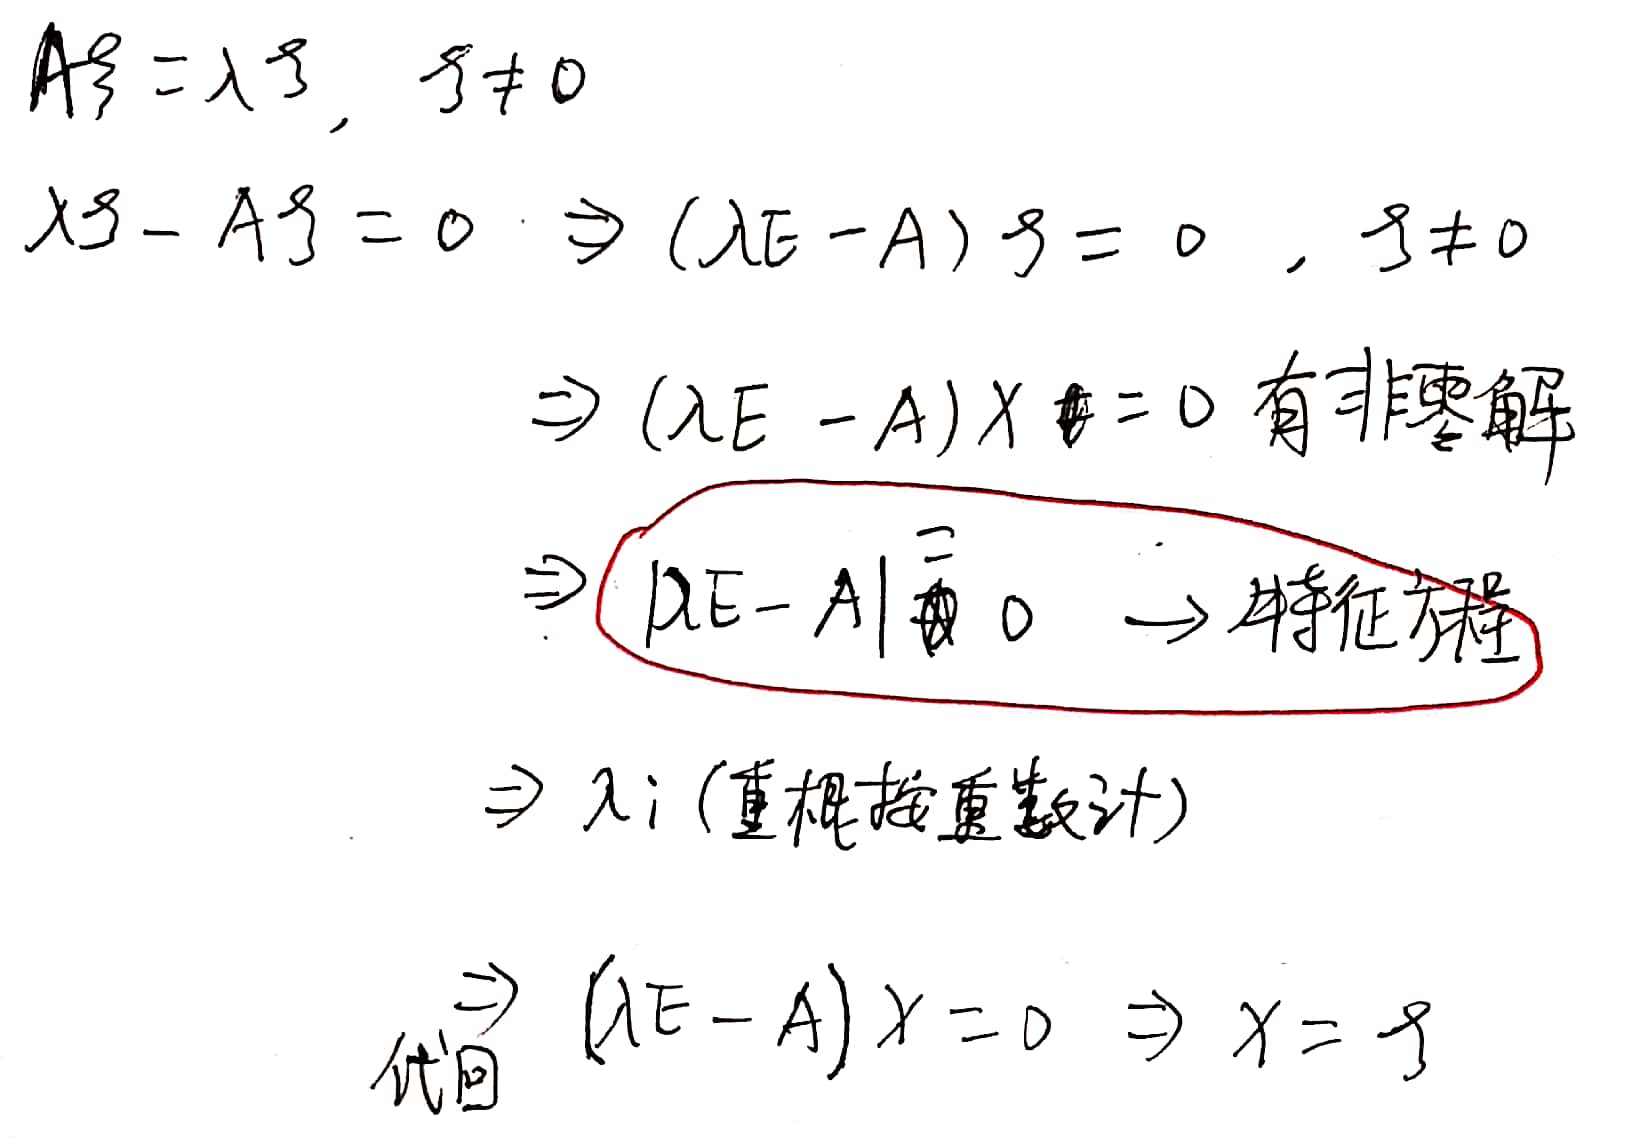 Aξ = λξ, ξ ≠ 0
λξ - Aξ = 0 ⇒ (λE - A) ξ = 0 , ξ ≠ 0
⇒ (λE - A) X = 0 有非零解
⇒ |λE - A| = 0 → 特征方程
⇒ λi (重根按重数计)
⇒ (λE - A) X = 0 ⇒ X = ξ
代回